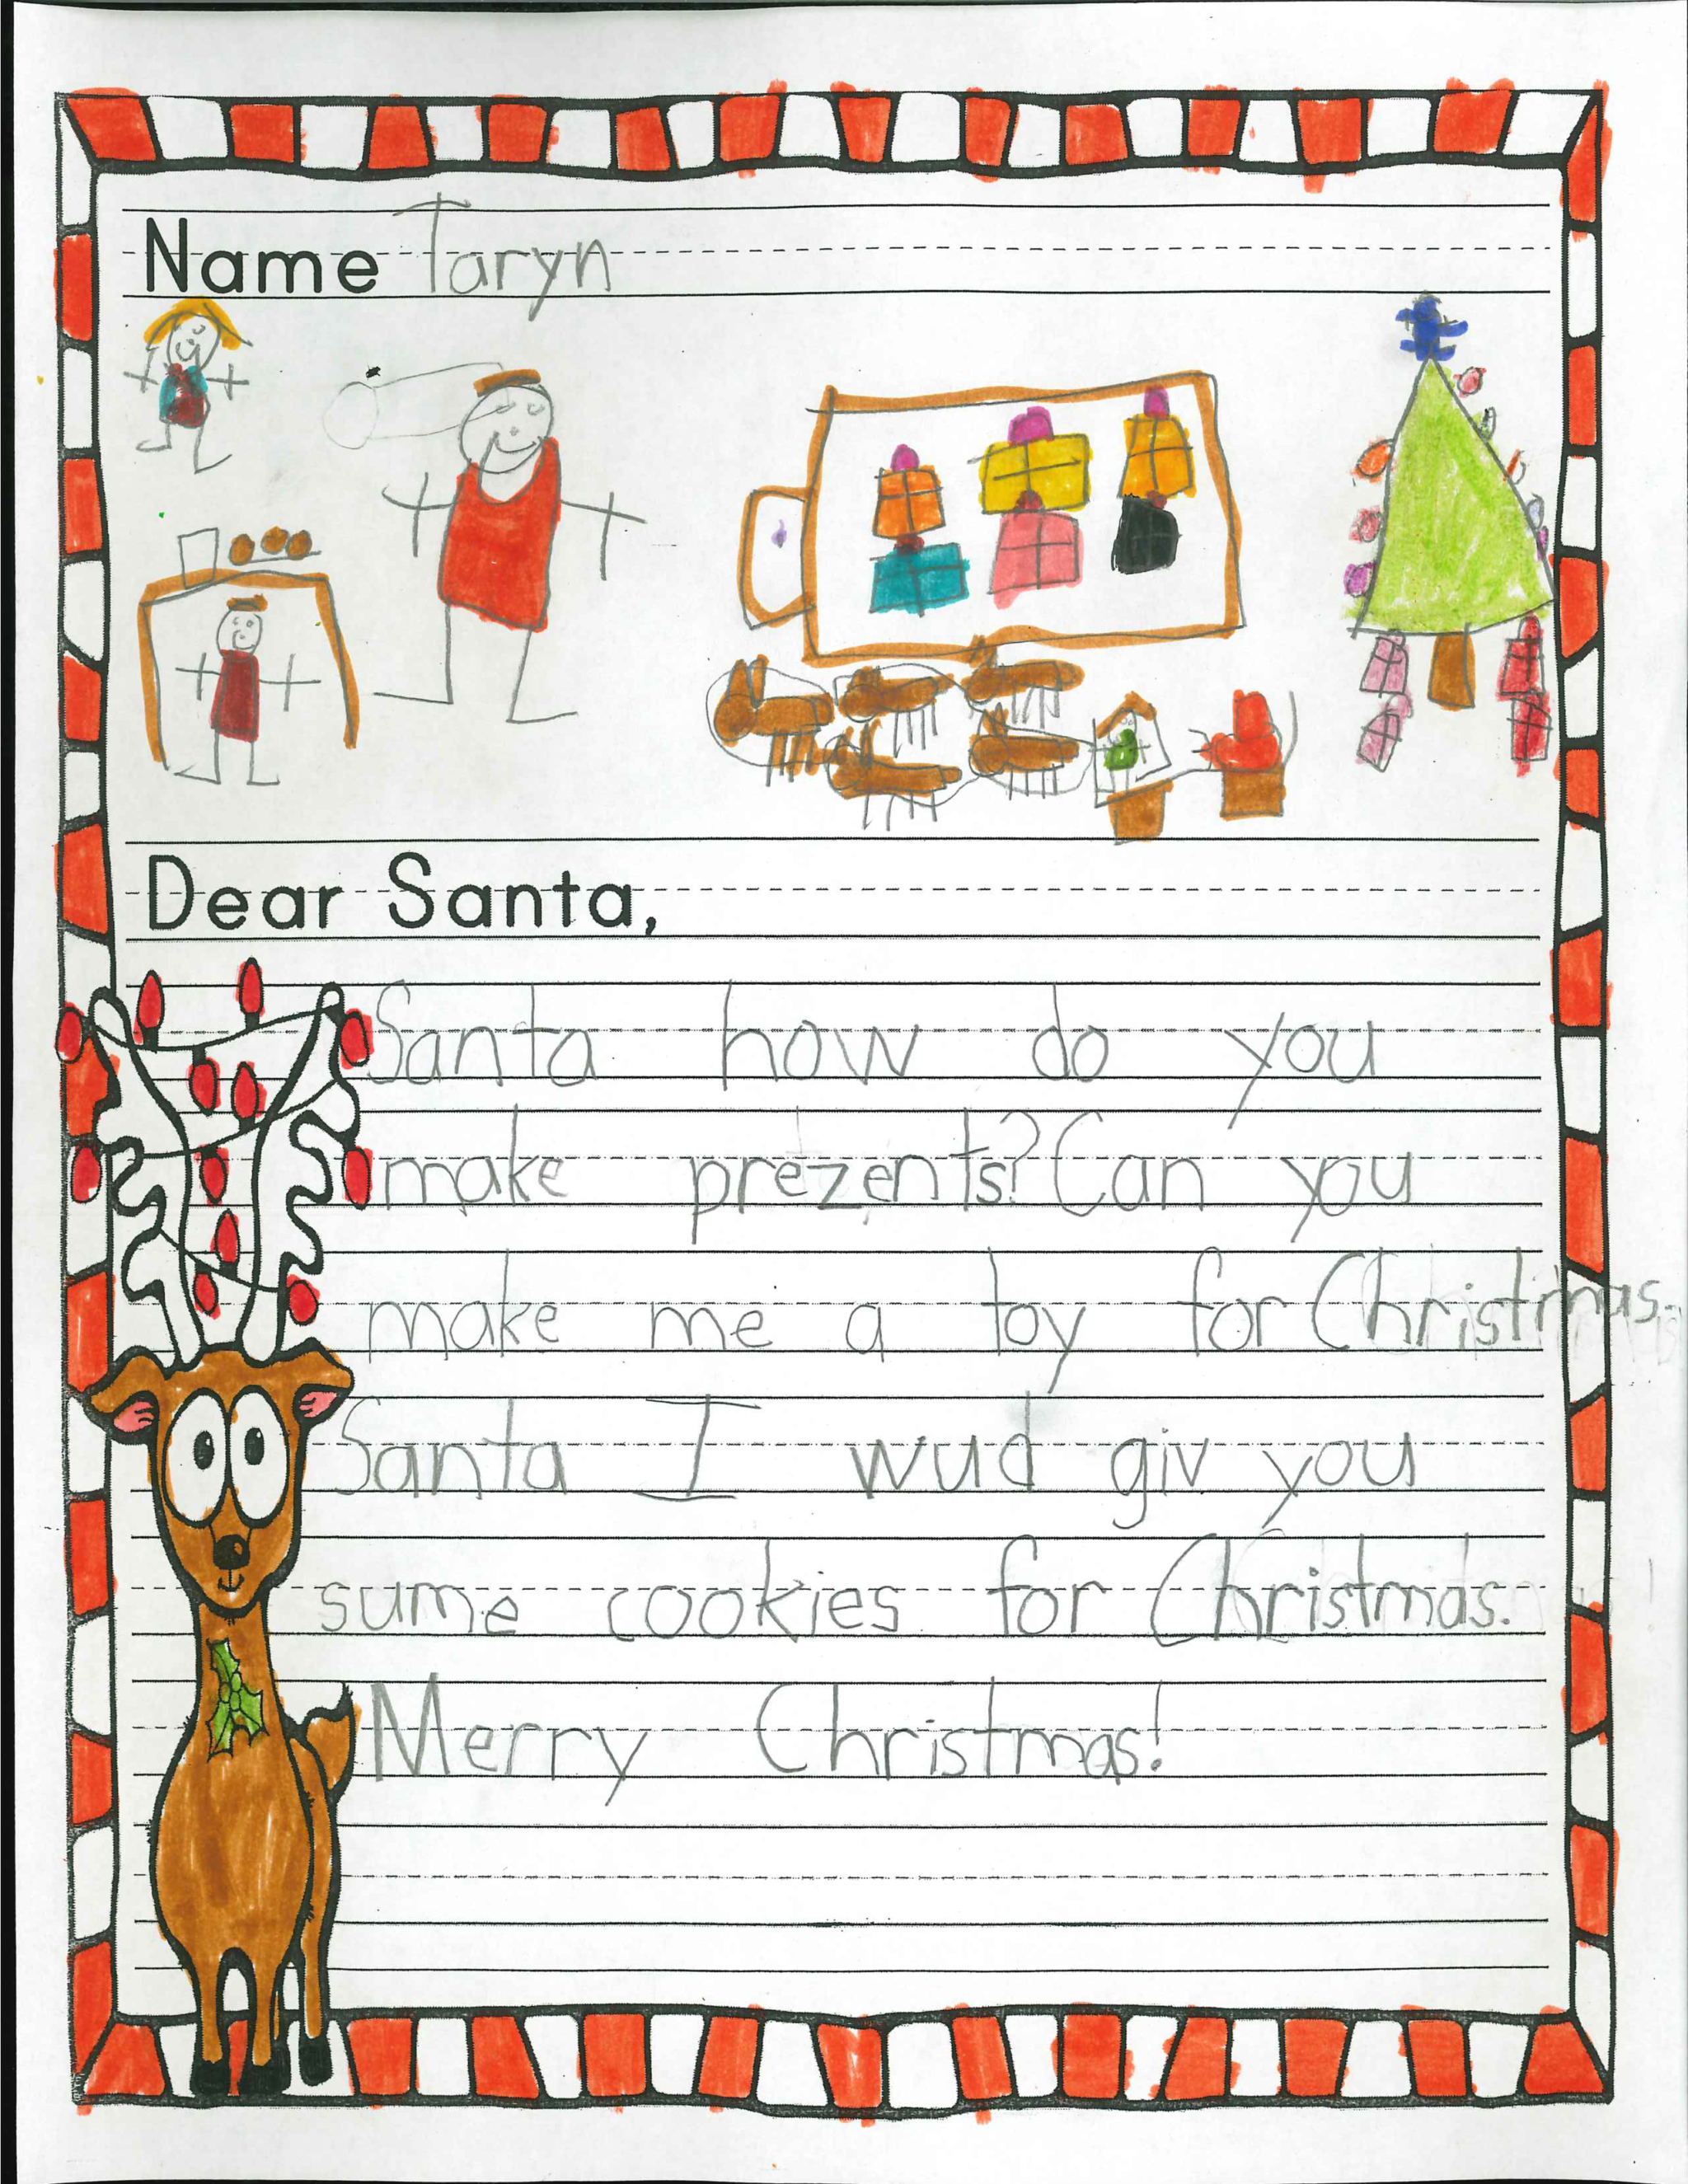 Name Taryn
Dear Santa,
Santa how do you
make prezents? Can you
make me a toy for Christmas.
Santa I wud giv you
sume cookies for Christmas.
Merry Christmas!